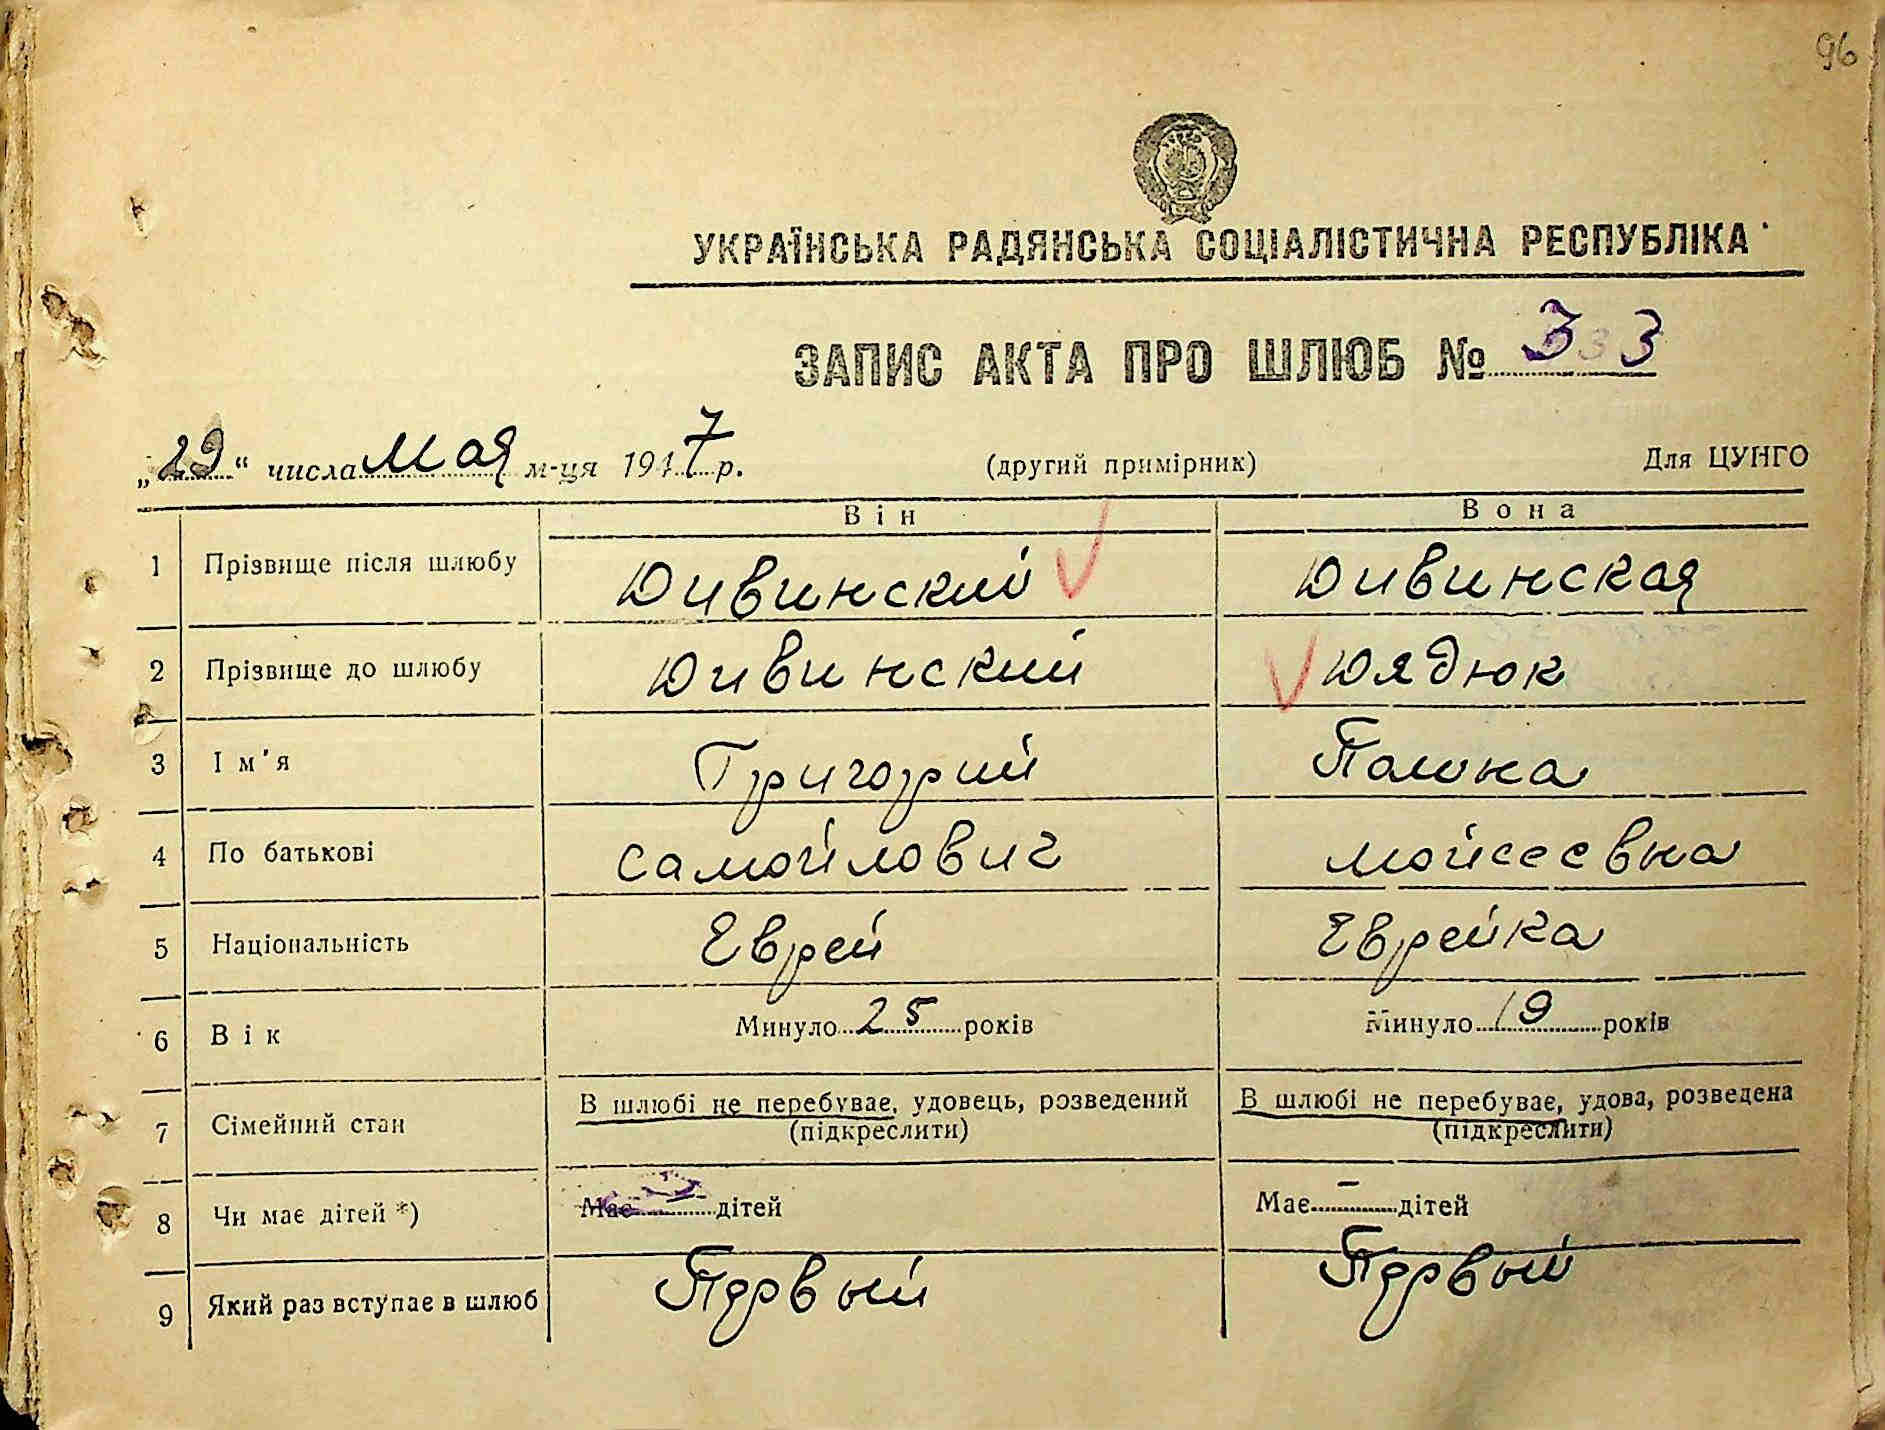 96
УКРАЇНСЬКА РАДЯНСЬКА СОЦІАЛІСТИЧНА РЕСПУБЛІКА
ЗАПИС АКТА ПРО ШЛЮБ № 333
„29“ числа Мая м-ця 1947 р. (другий примірник) Для ЦУНГО
Він Вона
1 Прізвище після шлюбу Дивинский Дивинская
2 Прізвище до шлюбу Дивинский Дядюк
3 Ім'я Григорий
4 По батькові Самойлович Мойсеевна
5 Національність Еврей Еврейка
6 Вік Минуло 25 років Минуло 19 років
7 Сімейний стан В шлюбі не перебуває, удовець, розведений (підкреслити) В шлюбі не перебуває, удова, розведена (підкреслити)
8 Чи має дітей *) Має — дітей Має — дітей
9 Який раз вступає в шлюб Первый Первый